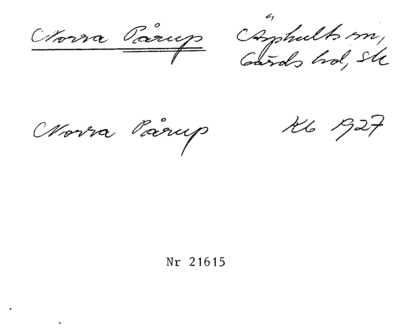 Norra Pårup Äsphults sn,
Gärds hd, Sk
Norra Pårup Kb 1927
Nr 21615